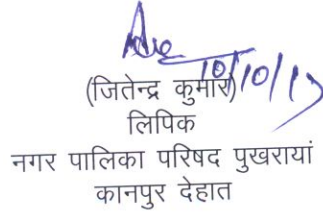 10/10/17
(जितेन्द्र कुमार)
लिपिक
नगर पालिका परिषद पुखरायां
कानपुर देहात